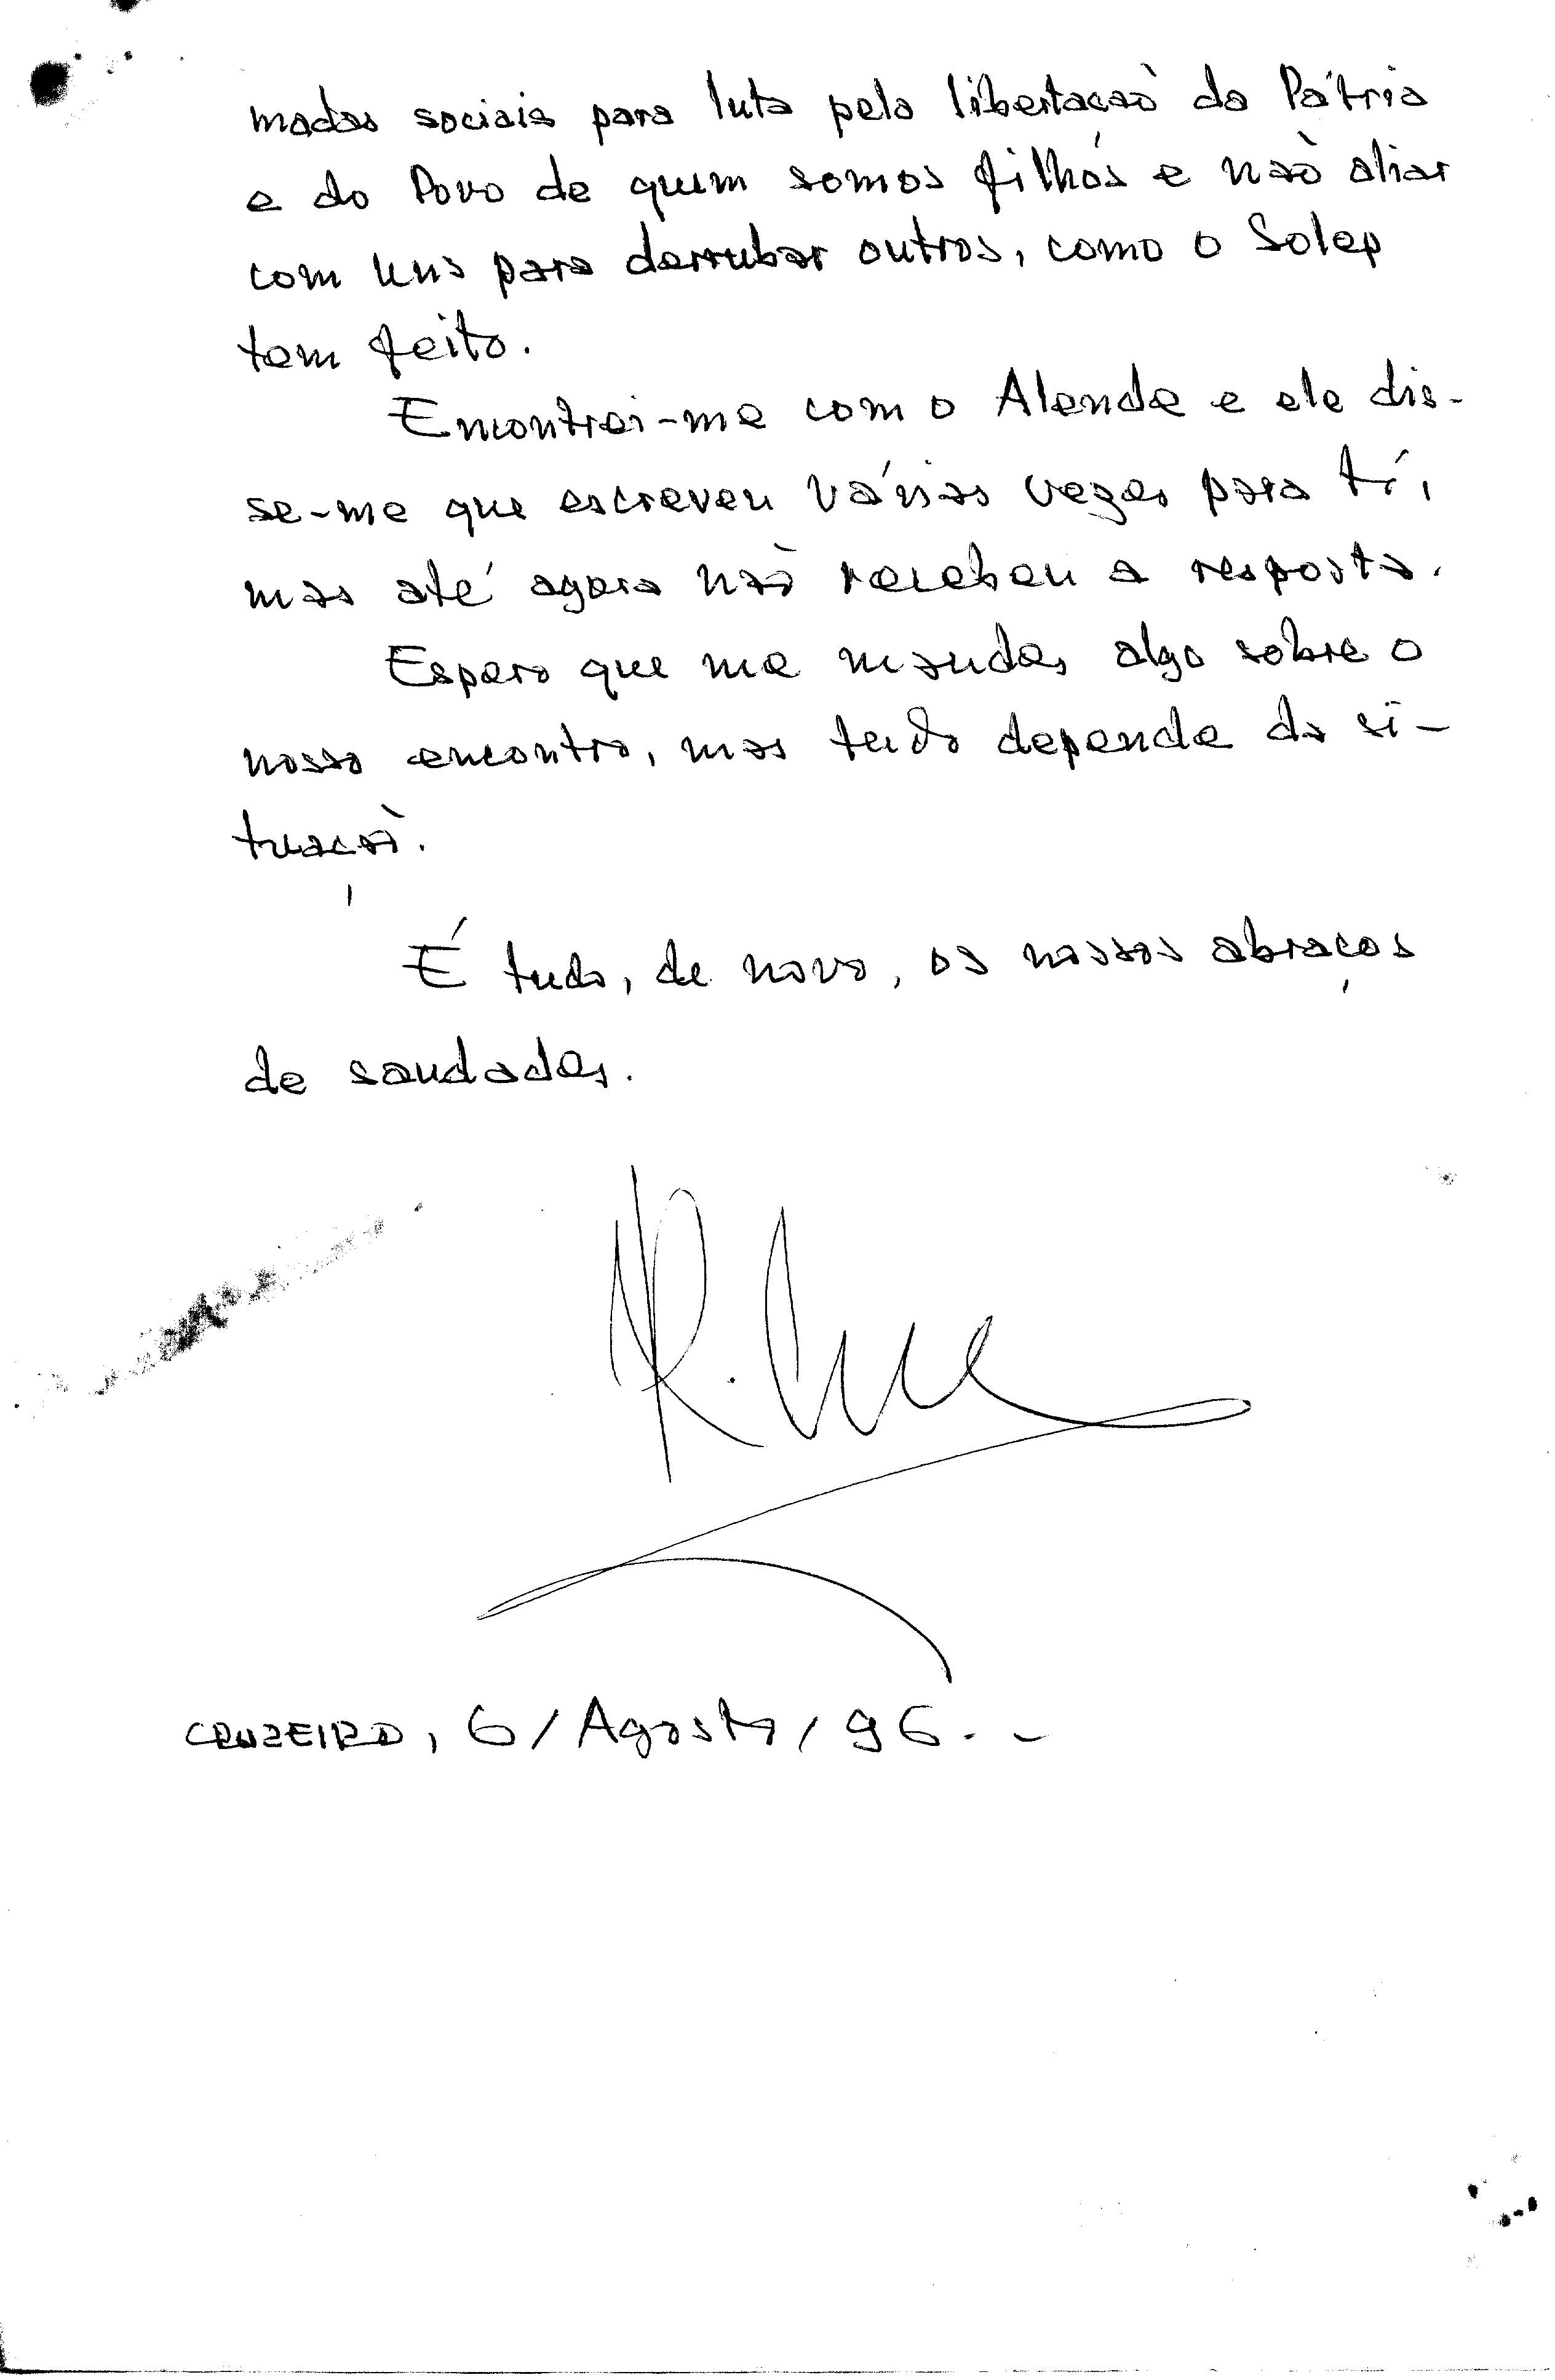 madas sociais para luta pela libertação da Pátria
e do Povo de quem somos filhos e não aliar
com uns para derrubar outros, como o Solep
tem feito.
Encontrei-me com o Alende e ele dis-
se-me que escreveu várias vezes para tí,
mas até agora não recebeu a resposta.
Espero que me mandes algo sobre o
nosso encontro, mas tudo depende da si-
tuação.
É tudo, de novo, os nossos abraços
de saudades.
CRUZEIRO, 6/Agosto/96.-